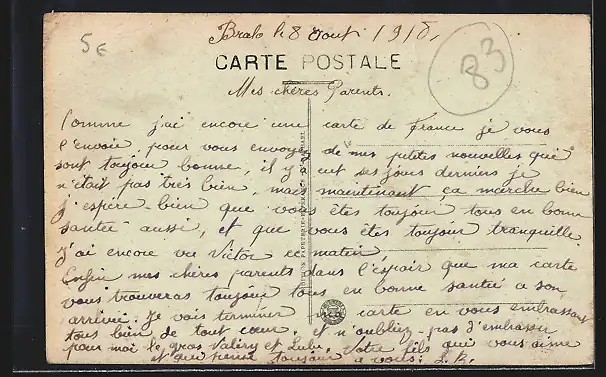 5€
Bralo le 8 Aout 1918,
CARTE POSTALE
83
Mes chères Parents.
Comme j'ai encore une carte de france je vous
l'envoie, pour vous envoyé de mes petites nouvelles qui
sont toujour bonne, il y eut ses jours derniers je
n'était pas très bien, mais maintenant ça marche bien
J'espère bien que vous êtes toujour tous en bonne
santée aussi, et que vous êtes toujour tranquille
J'ai encore vu Victor ce matin,
Enfin mes chères parents dans l'espoir que ma carte
vous trouveras toujour tous en bonne santée a son
arrivée. Je vais terminer carte en vous embrassant
tous bien de tout cœur. et n'oubliez-pas d'embrasser
pour moi le gros Valéry et Lulu. Votre fils qui vous aime
et qui pense toujour a vous. L.R.